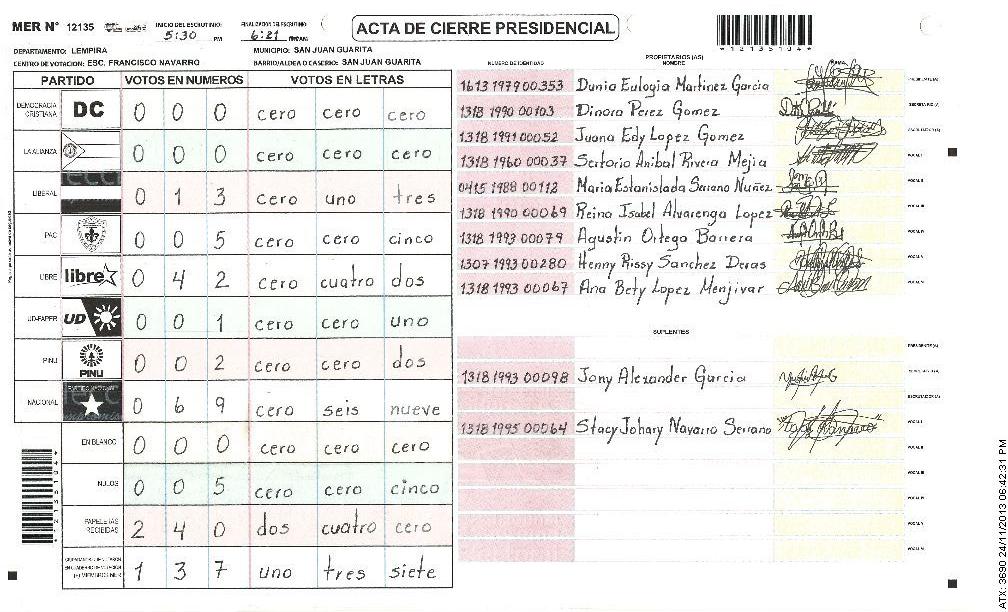 MER N° 12135 INICIO DEL ESCRUTINIO: 5:30 PM FINALIZACION DEL ESCRUTINIO 6:21 ACTA DE CIERRE PRESIDENCIAL
*12135104*
DEPARTAMENTO: LEMPIRA MUNICIPIO: SAN JUAN GUARITA
CENTRO DE VOTACION: ESC. FRANCISCO NAVARRO BARRIO/ALDEA O CASERIO: SAN JUAN GUARITA
PARTIDO VOTOS EN NUMEROS VOTOS EN LETRAS
DEMOCRACIA CRISTIANA DC 0 0 0 cero cero cero
LA ALIANZA 0 0 0 cero cero cero
LIBERAL 0 1 3 cero uno tres
PAC 0 0 5 cero cero cinco
LIBRE libre 0 4 2 cero cuatro dos
UD-FAPER UD 0 0 1 cero cero uno
PINU PINU 0 0 2 cero cero dos
NACIONAL 0 6 9 cero seis nueve
EN BLANCO 0 0 0 cero cero cero
NULOS 0 0 5 cero cero cinco
PAPELETAS RECIBIDAS 2 4 0 dos cuatro cero
1 3 7 uno tres siete
NUMERO DE IDENTIDAD PROPIETARIOS (AS) NOMBRE
1613 1979 00353 Dunia Eulogia Martinez Garcia PRESIDENTE (A)
1318 1990 00103 Dinora Perez Gomez SECRETARIO (A)
1318 1991 00052 Juana Edy Lopez Gomez ESCRUTADOR (A)
1318 1960 00037 Sertorio Anibal Rivera Mejia VOCAL I
0415 1988 00112 Maria Estanislada Serano Nuñez VOCAL II
1318 1990 00069 Reina Isabel Alvarenga Lopez VOCAL III
1318 1993 00079 Agustin Ortega Barrera VOCAL IV
1307 1993 00280 Henny Rissy Sanchez Deras VOCAL V
1318 1993 00067 Ana Bety Lopez Menjivar VOCAL VI
SUPLENTES
PRESIDENTE (A)
1318 1993 00098 Jony Alexander Garcia SECRETARIO (A)
ESCRUTADOR (A)
1318 1995 00064 Stacy Johary Navarro Serrano VOCAL I
VOCAL II
VOCAL III
VOCAL IV
VOCAL V
VOCAL VI
ATX: 3690 24/11/2013 06:42:31 PM